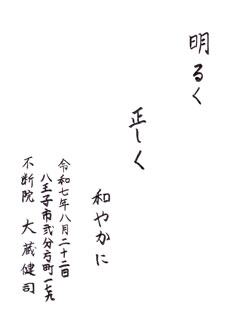 明るく
正しく
和やかに
令和七年八月二十二日
八王子市弐分方町一七九
不断院 大蔵健司